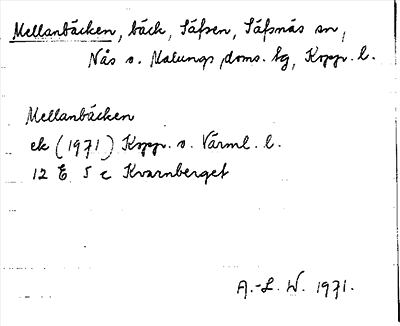 Mellanbäcken, bäck, Säfsen, Säfsnäs sn,
Nås o. Malungs doms. tg, Kopp. l.
Mellanbäcken
ek (1971) Kopp. o. Värml. l.
12 E 5 c Kvarnberget
A.-L. W. 1971.